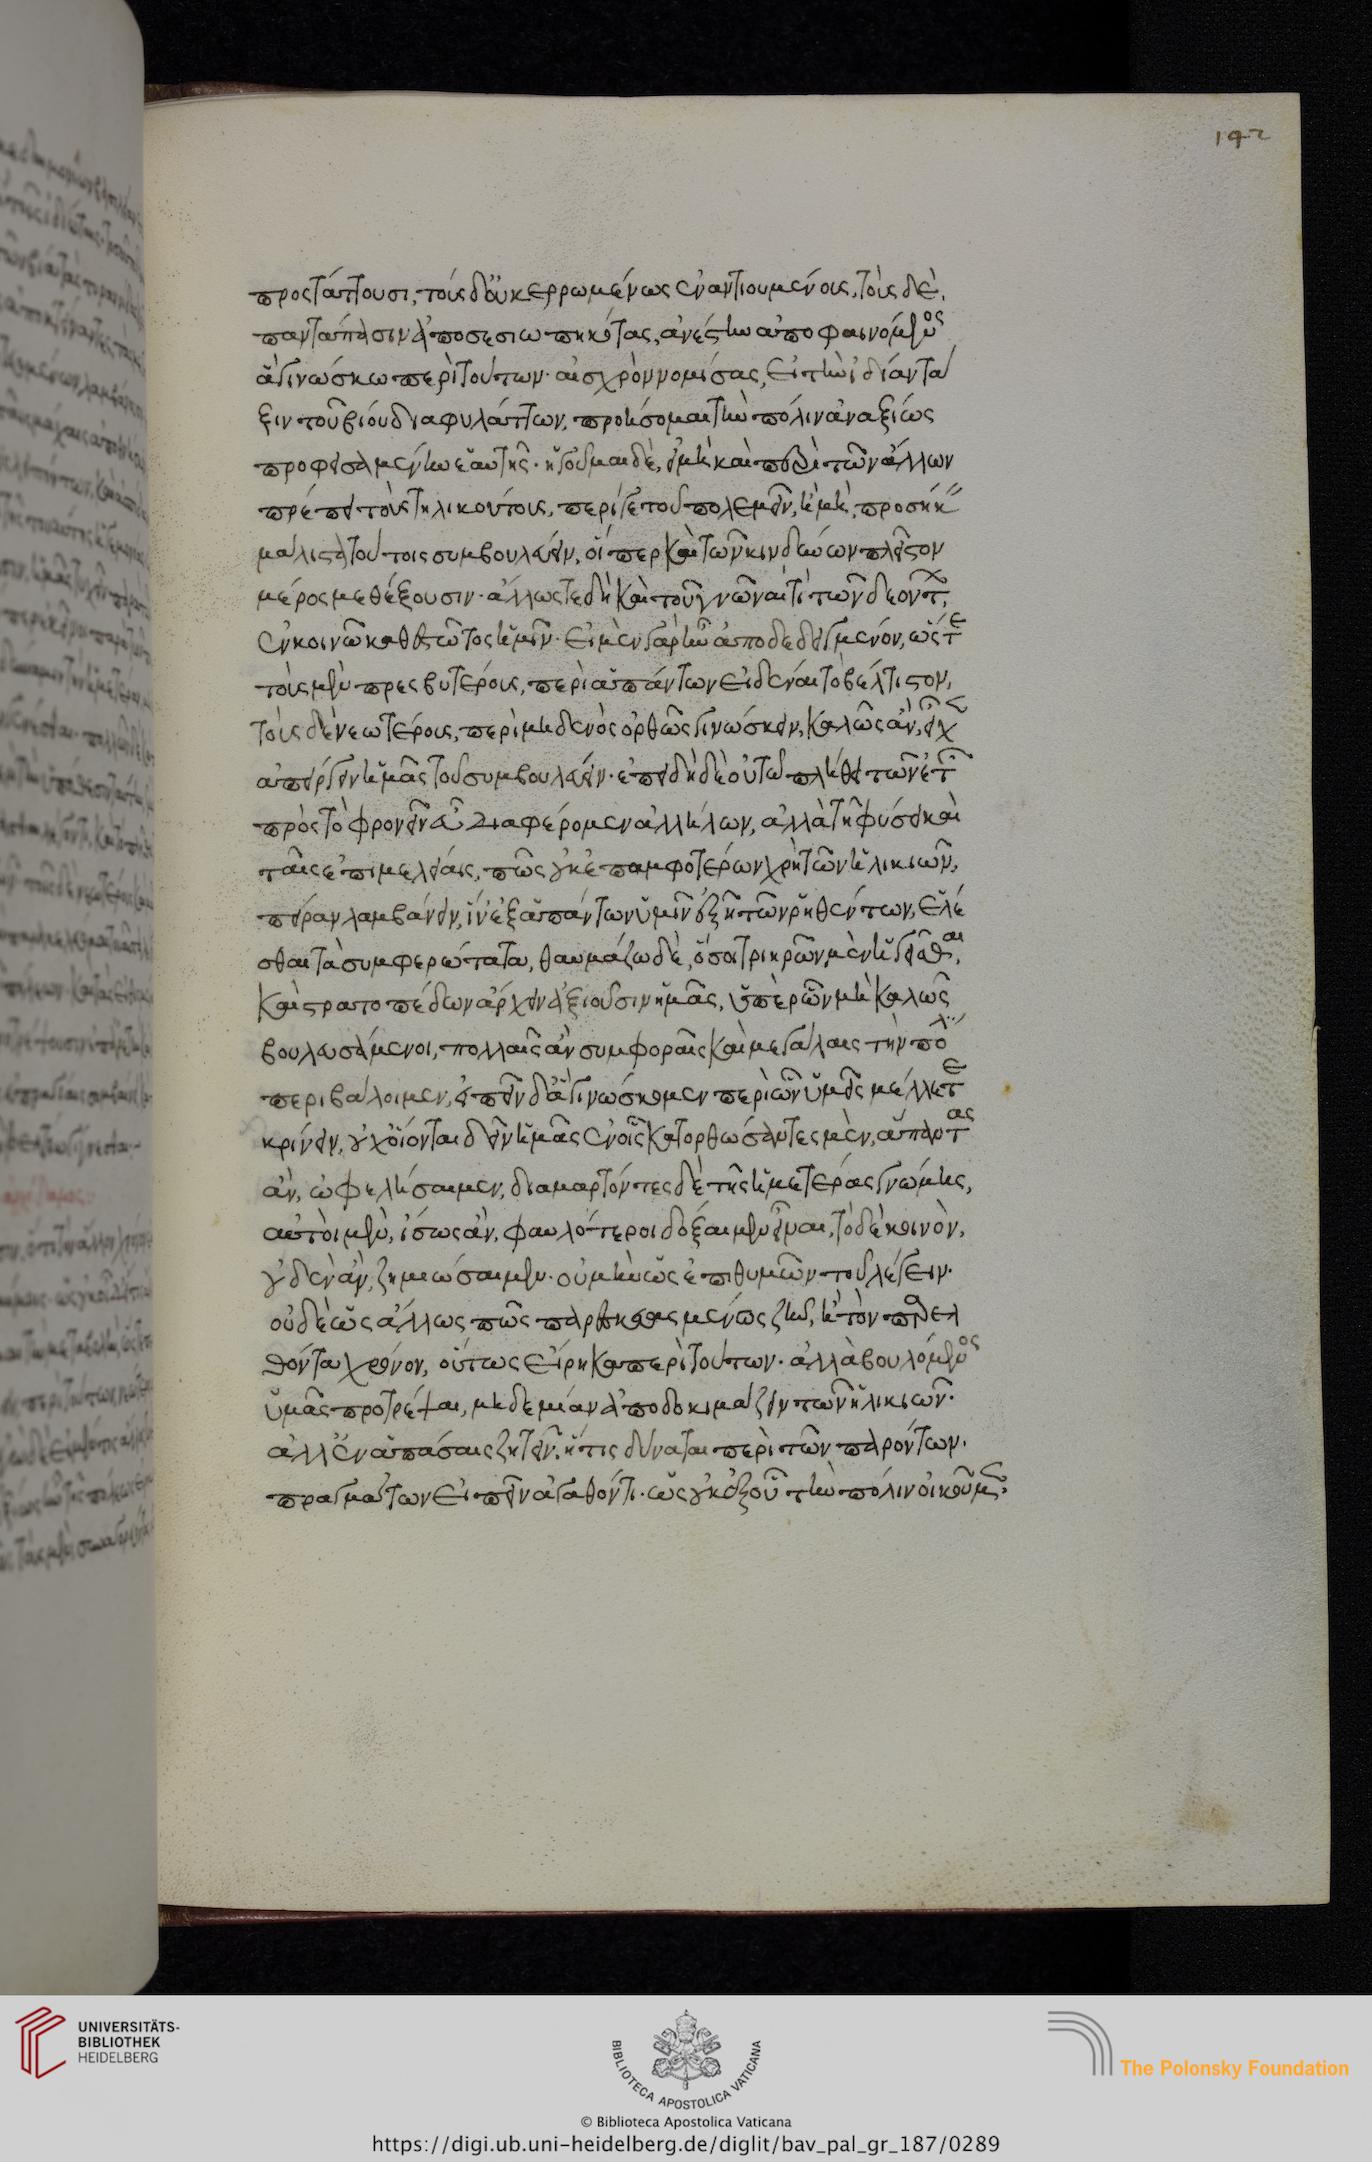 142
προστάττουσι, τοὺς δ' οὐκ ἐρρωμένως ἐναντιουμένους, τοὺς δὲ,
παντάπασιν ἀποσεσιωπηκότας, ἀνέστην ἀποφαινόμενος
ἃ γινώσκω περὶ τούτων· αἰσχρὸν νομίσας, εἰ τὴν ἰδίαν τά
ξιν τοῦ βίου διαφυλάττων, προήσομαι τὴν πόλιν ἀναξίως
ψηφισαμένην ἑαυτῆς· ἡγοῦμαι δὲ, εἰ μὴ καὶ περὶ τῶν ἄλλων
πρέπει τοὺς τηλικούτους, περί γε τοῦ πολεμεῖν, ἢ μὴ, προσήκειν
μάλιστα τούτοις συμβουλεύειν, οἵπερ καὶ τῶν κινδύνων πλεῖστον
μέρος μεθέξουσιν· ἄλλως τε δὴ καὶ τοῦ γνῶναί τι τῶν δεόντων,
ἐν κοινῷ καθεστῶτος ἡμῖν· εἰ μὲν γὰρ ἦν ἀποδεδειγμένον, ὥστε
τοὺς μὲν πρεσβυτέρους, περὶ ἁπάντων εἰδέναι τὸ βέλτιστον,
τοὺς δὲ νεωτέρους, περὶ μηδενὸς ὀρθῶς γινώσκειν, καλῶς ἂν, εἶχεν
ἀπείργειν ἡμᾶς τοῦ συμβουλεύειν· ἐπειδὴ δὲ οὐ τῷ πλήθει τῶν ἐτῶν
πρὸς τὸ φρονεῖν εὖ διαφέρομεν ἀλλήλων, ἀλλὰ τῇ φύσει καὶ
ταῖς ἐπιμελείαις, πῶς οὐκ ἐπ' ἀμφοτέρων χρὴ τῶν ἡλικιῶν,
πεῖραν λαμβάνειν, ἵν' ἐξ ἁπάντων ὑμῖν ἐξῇ τῶν ῥηθέντων, ἑλέ
σθαι τὰ συμφερώτατα, θαυμάζω δὲ, ὅσοι τριηρῶν μὲν ἡγεῖσθαι,
καὶ στρατοπέδων ἄρχειν ἀξιοῦσιν ἡμᾶς, ὑπὲρ ὧν μὴ καλῶς
βουλευσάμενοι, πολλαῖς ἂν συμφοραῖς καὶ μεγάλαις τὴν πόλιν
περιβάλοιμεν, εἰπεῖν δ' ἃ γινώσκομεν περὶ ὧν ὑμεῖς μέλλετε
κρίνειν, οὐχ οἴονται δεῖν ἡμᾶς ἐν οἷς κατορθώσαντες μὲν, ἅπαντας
ἂν, ὠφελήσαιμεν, διαμαρτόντες δὲ τῆς ἡμετέρας γνώμης,
αὐτοὶ μὲν, ἴσως ἂν, φαυλότεροι δόξαιμεν εἶναι, τὸ δὲ κοινὸν,
οὐδὲν ἂν, ζημιώσαιμεν· οὐ μὴν ὡς ἐπιθυμῶν τοῦ λέγειν·
οὐδὲ ὡς ἄλλως πως παρεσκευασμένος ζῆν, ἢ τὸν παρελ
θόντα χρόνον, οὕτως εἴρηκα περὶ τούτων· ἀλλὰ βουλόμενος
ὑμᾶς προτρέψαι, μηδεμίαν ἀποδοκιμάζειν τῶν ἡλικιῶν·
ἀλλ' ἐν ἁπάσαις ζητεῖν, ἥτις δύναται περὶ τῶν παρόντων,
πραγμάτων εἰπεῖν ἀγαθόν τι· ὡς οὐκ ἐξ οὗ τὴν πόλιν οἰκοῦμεν,
UNIVERSITÄTS-
BIBLIOTHEK
HEIDELBERG
BIBLIOTECA APOSTOLICA VATICANA
© Biblioteca Apostolica Vaticana
The Polonsky Foundation
https://digi.ub.uni-heidelberg.de/diglit/bav_pal_gr_187/0289